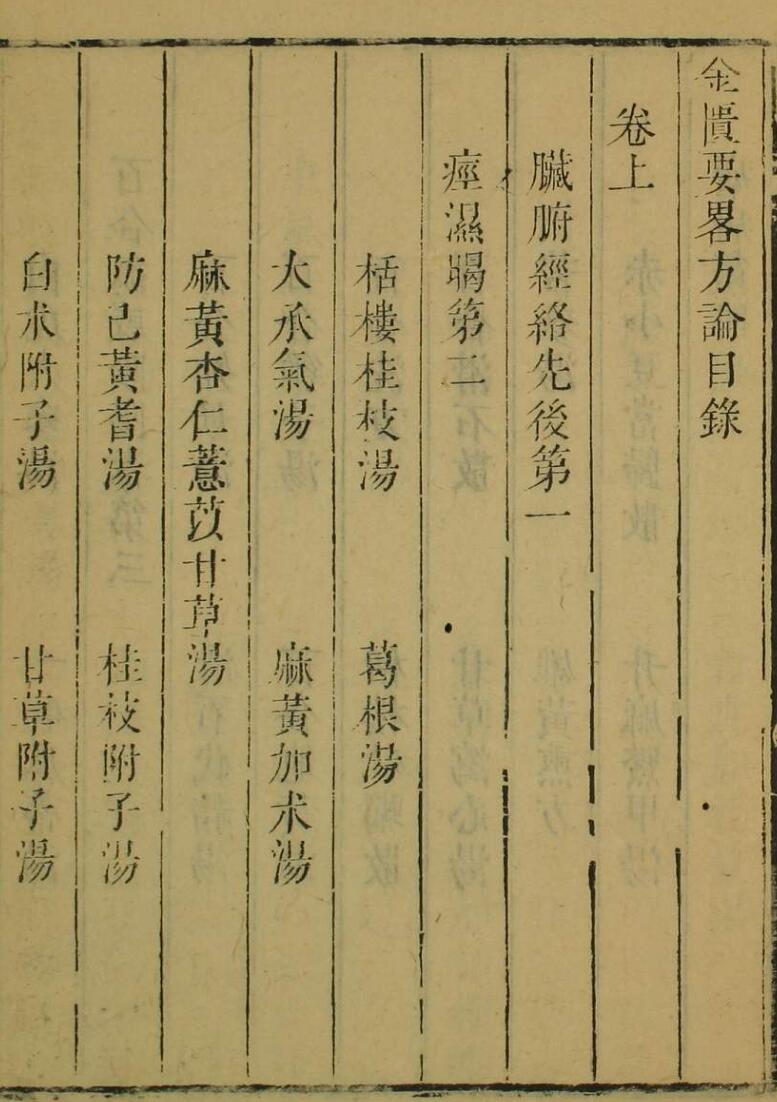 金匱要畧方論目錄
卷上
臟腑經絡先後第一
痙濕暍第二
栝樓桂枝湯 葛根湯
大承氣湯 麻黃加朮湯
麻黃杏仁薏苡甘草湯
防己黃耆湯 桂枝附子湯
白朮附子湯 甘草附子湯